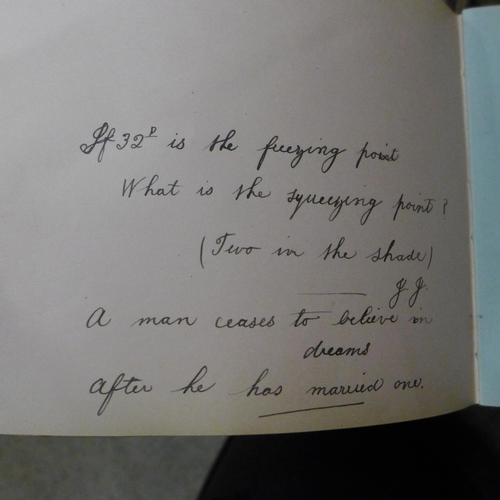 If 32° is the freezing point
What is the squeezing point?
(Two in the shade)
J.J.
A man ceases to believe in
dreams
after he has married one.